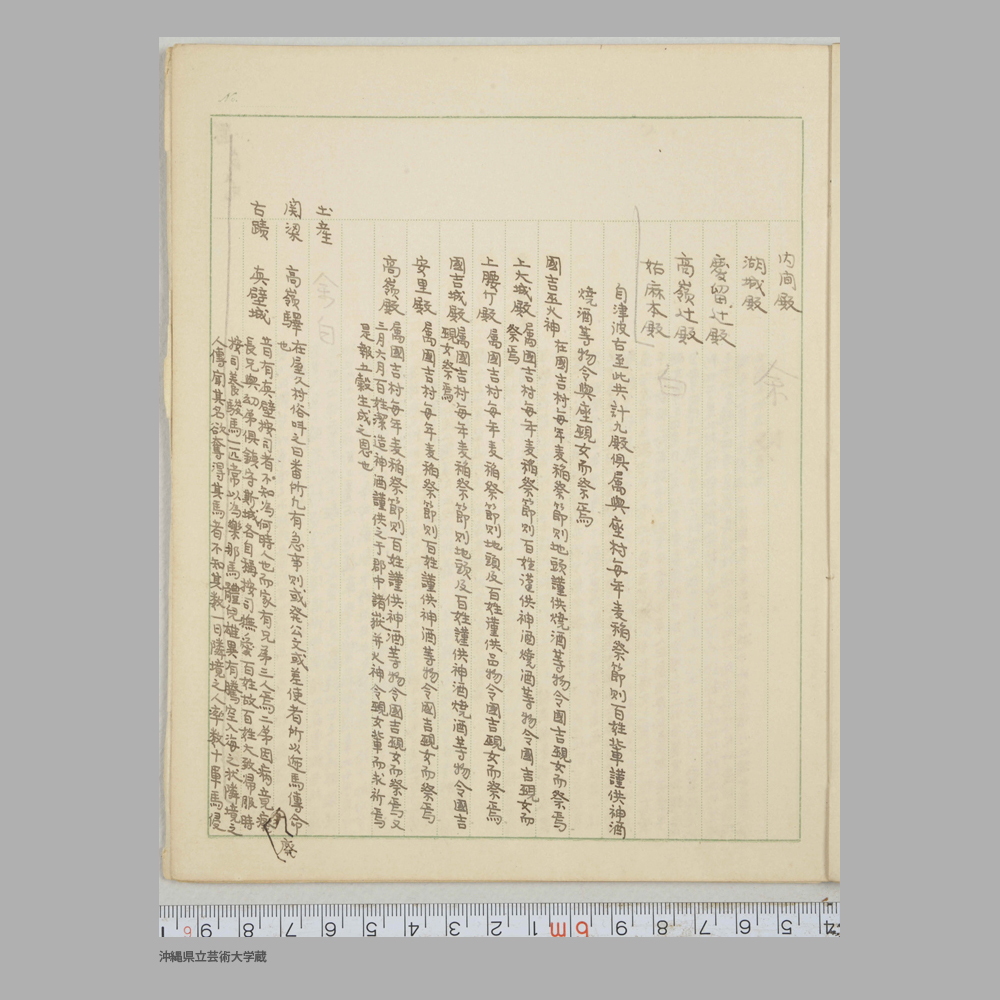 内間殿
湖城殿
慶留辻殿
高嶺辻殿
姑麻本殿
余
白
自津波古至此共計九殿俱属與座村毎年麦稲祭節則百姓輩謹供神酒
焼酒等物令與座覡女而祭焉
國吉巫火神 在國吉村毎年麦稲祭節則地頭謹供焼酒等物令國吉覡女而祭焉
上大城殿 属國吉村毎年麦稲祭節則百姓謹供神酒焼酒等物令國吉覡女而
祭焉
上腰ア殿 属國吉村毎年麦稲祭節則地頭及百姓謹供品物令國吉覡女而祭焉
國吉城殿 属國吉村毎年麦稲祭節則地頭及百姓謹供神酒焼酒等物令國吉
覡女祭焉
安里殿 属國吉村毎年麦稲祭節則百姓謹供神酒等物令國吉覡女而祭焉
高嶺殿 属國吉村毎年麦稲祭節則百姓謹供神酒等物令國吉覡女而祭焉又
三月六月百姓潔造神酒謹供之于郡中諸嶽并火神令覡女輩而求祈焉
是報五穀生成之恩也
土産 余白
関梁 高嶺驛 在屋久村俗呼之曰番所凡有急事則或発公文或差使者所以逓馬傳命
也
古蹟 真壁城 昔有真壁按司者不知為何時人也而家有兄弟三人焉二弟因病竟
廃
長兄與幼弟俱鎮守斯城各自稱按司撫愛百姓故百姓大致帰服時
按司養駿馬一匹常以為樂那馬體皃雄異有騰空入海之状隣境之
人傳聞其名欲奪得其馬者不知其数一日隣境之人率数十軍馬侵
沖縄県立芸術大学蔵